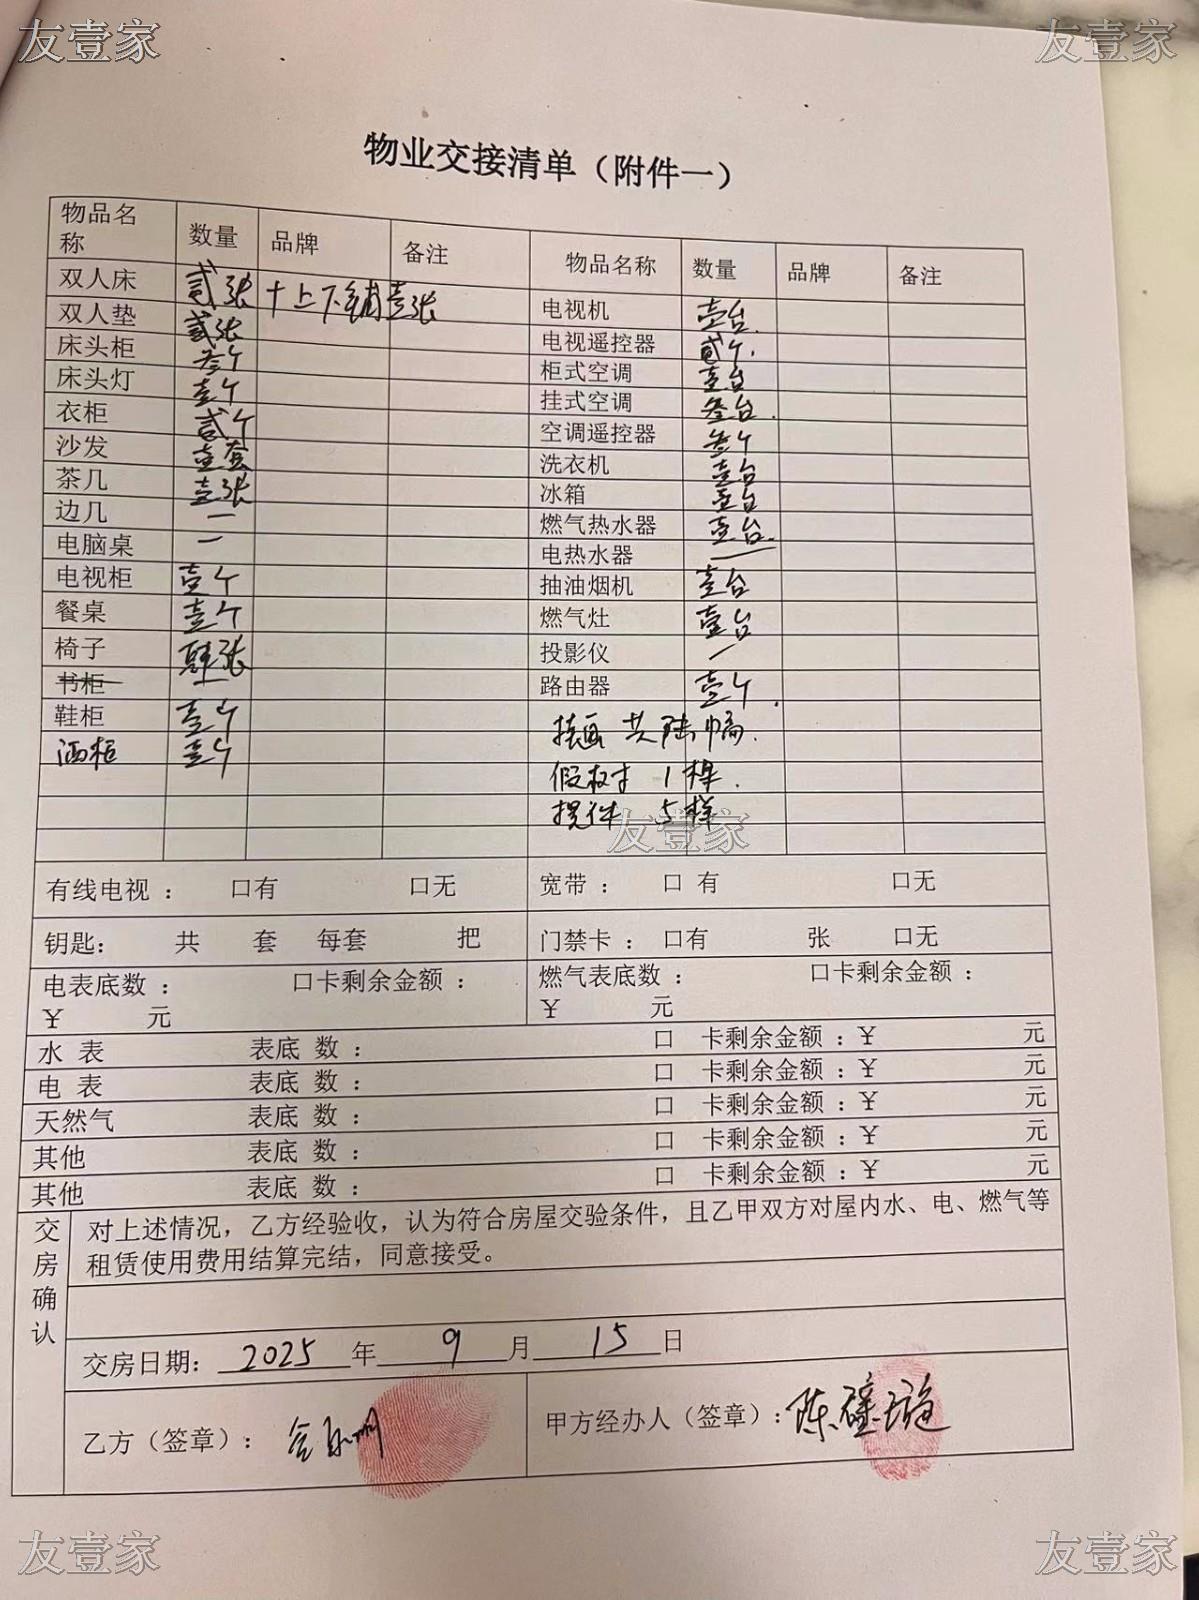 友壹家 友壹家
物业交接清单（附件一）
物品名称 数量 品牌 备注 物品名称 数量 品牌 备注
双人床 贰张 十上下铺壹张 电视机 壹台.
双人垫 贰张 电视遥控器 贰个.
床头柜 叁个 柜式空调 壹台
床头灯 壹个 挂式空调 叁台.
衣柜 贰个 空调遥控器 叁个
沙发 壹套 洗衣机 壹台
茶几 壹张 冰箱 壹台
边几 一 燃气热水器 壹台.
电脑桌 一 电热水器 —
电视柜 壹个 抽油烟机 壹台
餐桌 壹个 燃气灶 壹台
椅子 肆张 投影仪 一
书柜 — 路由器 壹个.
鞋柜 壹个 挂画 共陆幅.
酒柜 壹个 假树 1棵.
摆件 5样
友壹家
有线电视： 口有 口无 宽带： 口 有 口无
钥匙： 共 套 每套 把 门禁卡： 口有 张 口无
电表底数： 口卡剩余金额： 燃气表底数： 口卡剩余金额：
¥ 元 ¥ 元
水 表 表底 数： 口 卡剩余金额：¥ 元
电 表 表底 数： 口 卡剩余金额：¥ 元
天然气 表底 数： 口 卡剩余金额：¥ 元
其他 表底 数： 口 卡剩余金额：¥ 元
其他 表底 数： 口 卡剩余金额：¥ 元
交房确认
对上述情况，乙方经验收，认为符合房屋交验条件，且乙甲双方对屋内水、电、燃气等
租赁使用费用结算完结，同意接受。
交房日期： 2025 年 9 月 15 日
乙方（签章）： 甲方经办人（签章）：陈璇
友壹家 友壹家